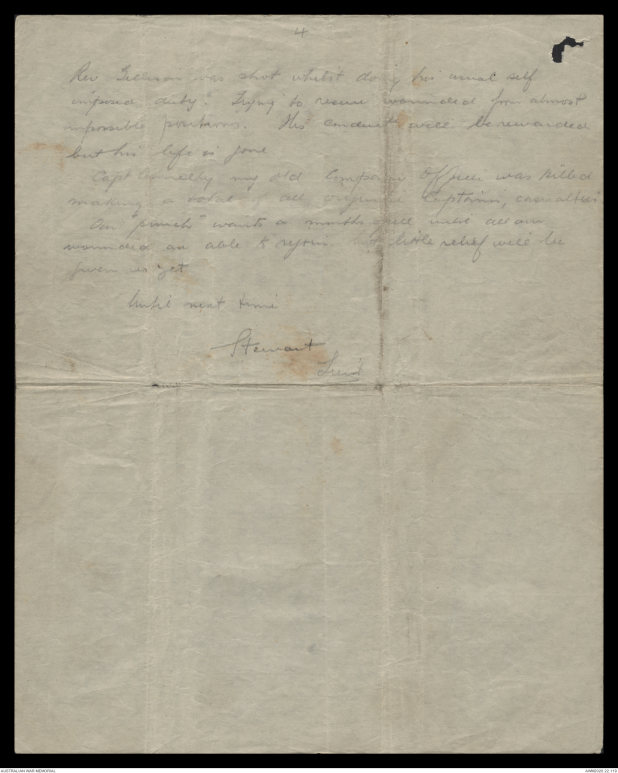 4
Rev Gillison was shot whilst doing his usual self
imposed duty. Trying to rescue wounded from almost
impossible positions. His conduct will be rewarded
but his life is gone
Capt Connelly my old Company Officer was killed
making a total of all original Captains, casualties.
Our "punch" wants a months spell until all our
wounded are able to rejoin but little relief will be
given us yet
Until next time
Stewart
AUSTRALIAN WAR MEMORIAL